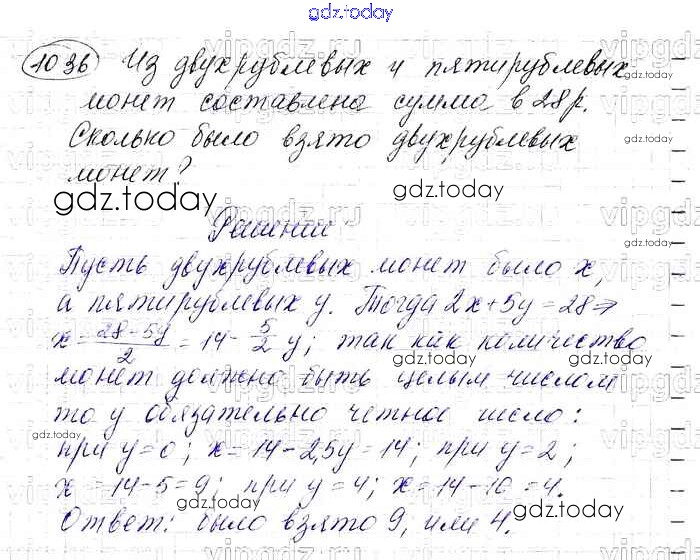 gdz.today
1036 Из двухрублевых и пятирублевых
монет составлена сумма в 28 р.
Сколько было взято двухрублевых
монет?
gdz.today
gdz.today
Решение
Пусть двухрублевых монет было x,
а пятирублевых y. Тогда 2x+5y=28⇒
x = (28-5y)/2 = 14 - 5/2 y; так как количество
gdz.today
монет должно быть целым числом
то y обязательно четное число:
gdz.today
gdz.today
при y=0; x=14-2,5y=14; при y=2;
x=14-5=9; при y=4; x=14-10=4.
gdz.today
gdz.today
Ответ: было взято 9, или 4.
gdz.today